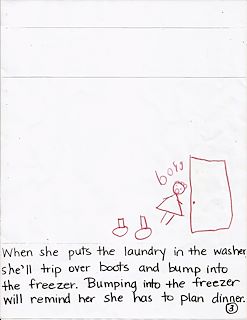 bong
When she puts the laundry in the washer
she'll trip over boots and bump into
the freezer. Bumping into the freezer
will remind her she has to plan dinner.
3